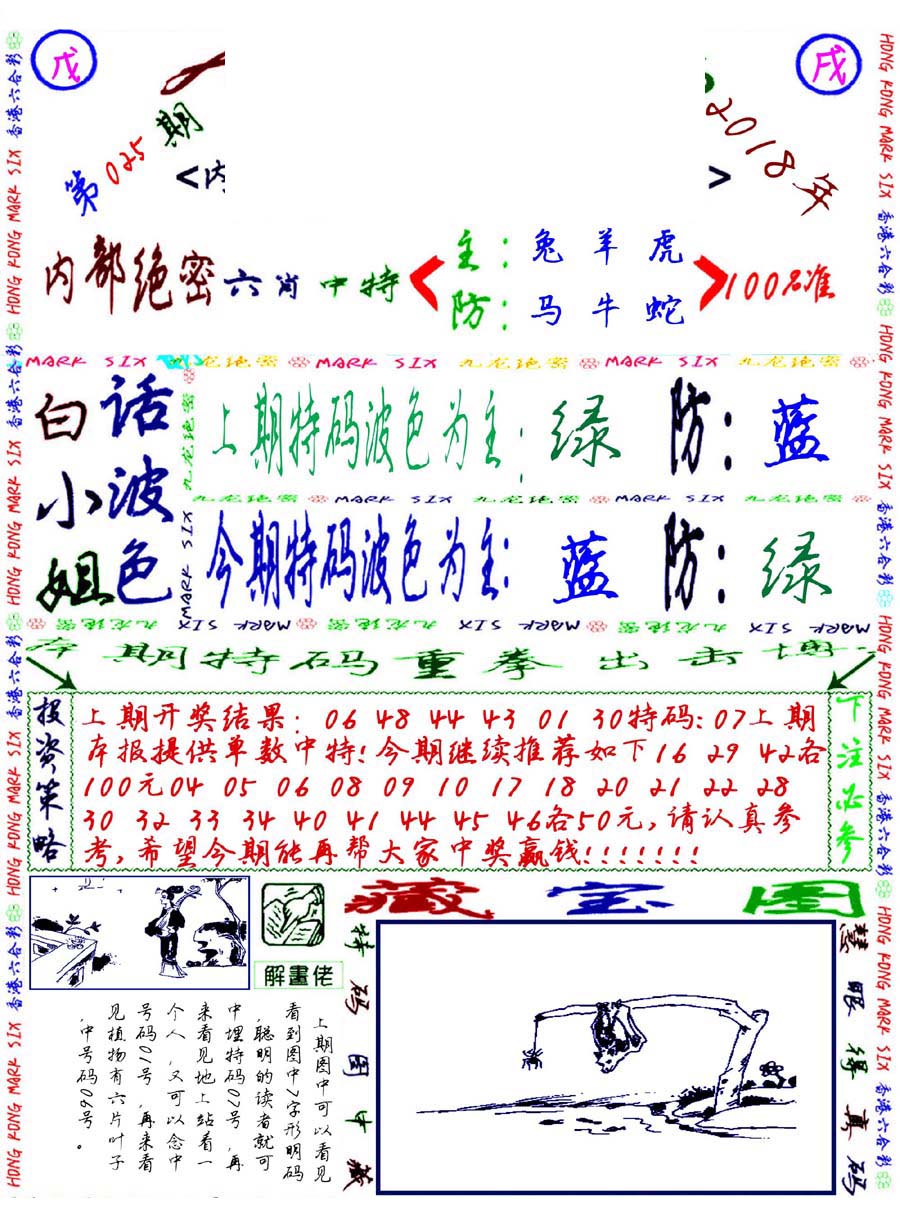 戊
戌
第025期
<内
>
2018年
内部绝密六肖中特
主：兔羊虎
防：马牛蛇
100%准
MARK SIX 九龙绝密 MARK SIX 九龙绝密 MARK SIX 九龙绝密
白话小波姐色
上期特码波色为主：绿 防：蓝
九龙绝密 MARK SIX 九龙绝密 MARK SIX 九龙绝密
今期特码波色为主：蓝 防：绿
MARK SIX 九龙绝密 MARK SIX 九龙绝密 MARK SIX 九龙绝密
期特码重拳出击
投资策略
上期开奖结果：06 48 44 43 01 30特码：07上期
本报提供单数中特！今期继续推荐如下16 29 42各
100元04 05 06 08 09 10 17 18 20 21 22 28
30 32 33 34 40 41 44 45 46各50元，请认真参
考，希望今期能再帮大家中奖赢钱！！！！！！！
下注必参
藏宝图
解畫佬
特码图中藏
慧眼得真码
上期图中可以看见
看到图中7字形明码
，聪明的读者就可
中埋特码07号，再
来看见地上站着一
个人，又可以念中
号码01号，再来看
见植物有六片叶子
，中号码06号。
HONG KONG MARK SIX 香港六合彩 HONG KONG MARK SIX 香港六合彩 HONG KONG MARK SIX 香港六合彩 HONG KONG MARK SIX 香港六合彩
HONG KONG MARK SIX 香港六合彩 HONG KONG MARK SIX 香港六合彩 HONG KONG MARK SIX 香港六合彩 HONG KONG MARK SIX 香港六合彩